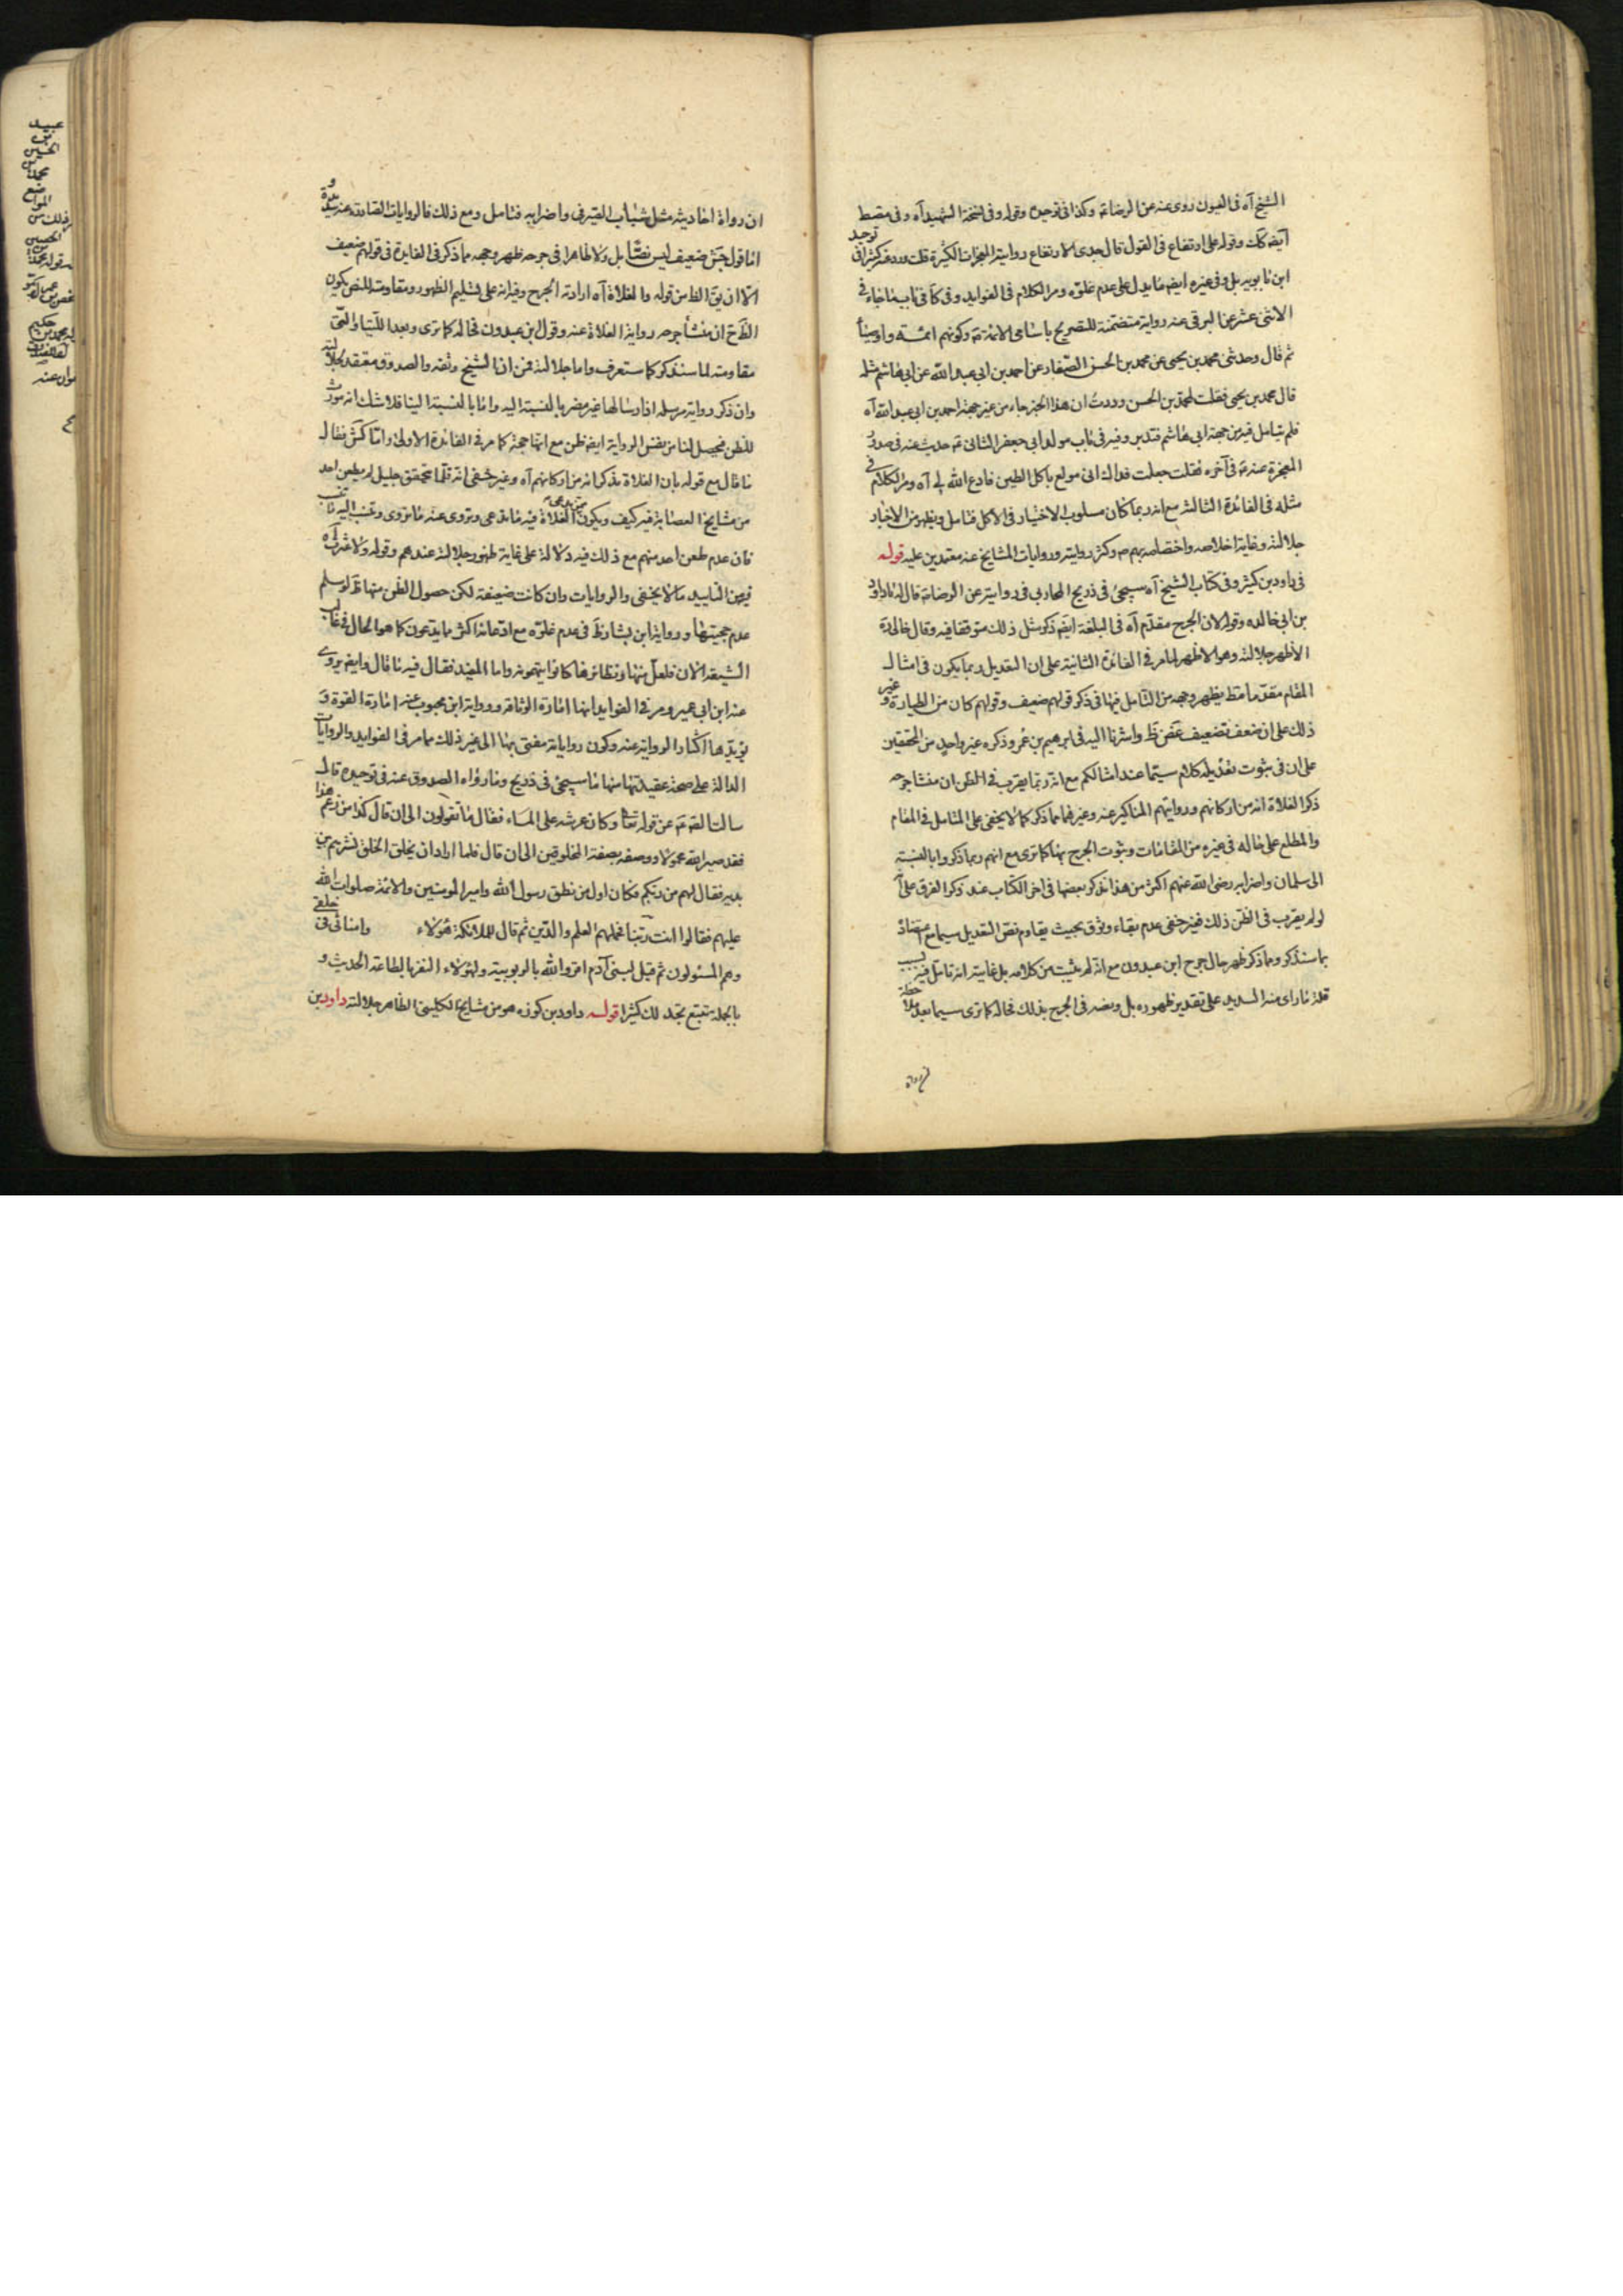 الشيخ آه في العيون روى عنه عن الرضا ع وكذا في توحيده وقوله وفي نسخة الشهيد آه وفي مقصط
ايضه كك وقوله على ارتفاع في القول قال جدى الارتفاع رواية المعجزات الكثيرة قلت وروى كثيرا في توحيد
ابن بابويه بل وفي غيره ايضه ما يدل على عدم غلوه ومر الكلام في الفوايد وفي كا في باب ما جاء في
الاثني عشر عن البرقي عنه رواية متضمنة للتصريح باسامى الائمة ع وكونهم ائمة واوصياء
ثم قال وحدثني محمد بن يحيى عن محمد بن الحسن الصفار عن احمد بن ابي عبد الله عن ابي هاشم مثله
قال محمد بن يحيى فقلت لمحمد بن الحسن وددت ان هذا الخبر جاء من غير جهة احمد بن ابي عبد الله آه
فلم يتامل فيه من جهة ابي هاشم فتدبر وفيه في باب مولد ابي جعفر الثاني ع حديث عنه في صدور
المعجزة عنه ع في آخره فقلت جعلت فداك اني مولع باكل الطين فادع الله لي آه ومر الكلام في
مثله في الفائدة الثالثة مع انه ربما كان مسلوب الاختيار في الاكل فتامل ويظهر من الاخبار
جلالته وغاية اخلاصه واختصاصه بهم ع وكثرة روايته وروايات المشايخ عنه معتمدين عليه قوله
في داود بن كثير وفي كتاب الشيخ آه سيجئ في ذريح المحاربي في روايته عن الرضا ع قال له داود
بن ابي خالد وقوله لان الجرح مقدم آه في البلغة ايضه ذكر مثل ذلك متوقفا فيه وقال خالي ره
الاظهر جلالته وهو الاظهر لما مر في الفائدة الثانية على ان التعديل ربما يكون في امثال
المقام مقدما مضط يظهر وجهه من التامل فيها في ذكر قولهم ضعيف وقولهم كان من الطيارة وغير
ذلك على ان ضعف تضعيف غض ظ واشرنا اليه في ابرهيم بن عمر وذكره غير واحد من المحققين
على ان في ثبوت تعديله كلام سيما عند امثالكم مع انه ربما يقرب في الظن ان منشا جرحه
ذكر الغلاة انه من اركانهم وروايتهم المناكير عنه وغيرهما مما ذكر كما لا يخفى على المتامل في المقام
والمطلع على حاله في غيره من المقامات وثبوت الجرح بها كما ترى مع انهم ربما ذكروا بالنسبة
الى سلمان واضرابه رضي الله عنهم اكثر من هذا نذكر بعضها في آخر الكتاب عند ذكر الفرق على
لو لم يقرب في الظن ذلك فغير خفى عدم بقاء وثوق بحيث يقاوم نص التعديل سيما مع اعتضاده
بما سنذكر ومما ذكر ظهر حال جرح ابن عبدون مع انه لم يثبت من كلامه بل غايته انه تامل فيه بسبب
قلة ما راى منه السديد على تقدير ظهوره بل ونصه في الجرح بذلك فحاله كما ترى سيما بعد ملاحظة
ان رواة
ان رواة احاديثه مثل شباب الصيرفي واضرابه فتامل ومع ذلك فالروايات الصادرة عنه
اما قول جش ضعيف ليس نصا بل ولا ظاهرا في جرحه ظهر وجهه مما ذكر في الفايدة في قولهم ضعيف
الا ان يق الظ من قوله والغلاة آه ارادته الجرح وفيه انه على تسليم الظهور ومقاومته للنص يكون
الظ ح ان منشأ جرحه رواية الغلاة عنه وقول ابن عبدون فحاله كما ترى وبعد اللتيا والتي
مقاومته لما سنذكر كما ستعرف واما جلالته فمن ان الشيخ وثقه والصدوق معتقد لجلالته
وان ذكر رواية مرسلة اذ ارسالها غير مضر بالنسبة اليه واما بالنسبة الينا فلا شك انه مورث
للظن فيحصل لنا من نفس الرواية ايضه ظن مع انها حجة كما مر في الفائدة الاولى واما كش فقال
ما قال مع قوله بان الغلاة يذكر انه من اركانهم آه وغير خفى انه قلما يتحقق جليل لم يطعن احد
من مشايخ العصابة فيه كيف ويكون الغلاة فيه ما تدعى وتروى عنه ما تروى وتنسب اليه ما تنسب
فان عدم طعن احد منهم مع ذلك فيه دلالة على غاية ظهور جلالته عندهم وقوله ولا عثرت آه
فيه من التاييد ما لا يخفى والروايات وان كانت ضعيفة لكن حصول الظن منها ظ لو سلم
عدم حجيتها ورواية ابن بشار ظ في عدم غلوه مع ادعائه اكثر ما يدعون كما هو الحال في غالب
الشيعة الآن فلعل منها ونظائرها كانوا يتهمونه واما المفيد فقال فيه ما قال وايضه يروى
عنه ابن ابي عمير ومر في الفوايد انها امارة الوثاقة ورواية ابن محبوب عنه امارة القوة و
يؤيدها اكثار الرواية عنه وكون رواياته مفتى بها الى غير ذلك مما مر في الفوايد والروايات
الدالة على صحة عقيدتها منها ما سيجئ في ذريح وما رواه الصدوق عنه في توحيده قال
سالت الص ع عن قوله تعا وكان عرشه على الماء فقال ما تقولون الى ان قال كذا من زعم هذا
فقد صير الله محمولا ووصفه بصفة المخلوقين الى ان قال فلما اراد ان يخلق الخلق نشرهم بين
يديه فقال لهم من ربكم فكان اول من نطق رسول الله وامير المؤمنين والائمة صلوات الله
عليهم فقالوا انت ربنا فحملهم العلم والدين ثم قال للملائكة هؤلاء وامنائى في خلقي
وهم المسئولون ثم قيل لبني آدم اقروا لله بالربوبية ولهؤلاء النفر بالطاعة الحديث و
بالجملة تتبع تجد لك كثيرا قوله داود بن كوره هو من مشايخ الكليني الظاهر جلالته داود بن
عبيد
بن
الحسين